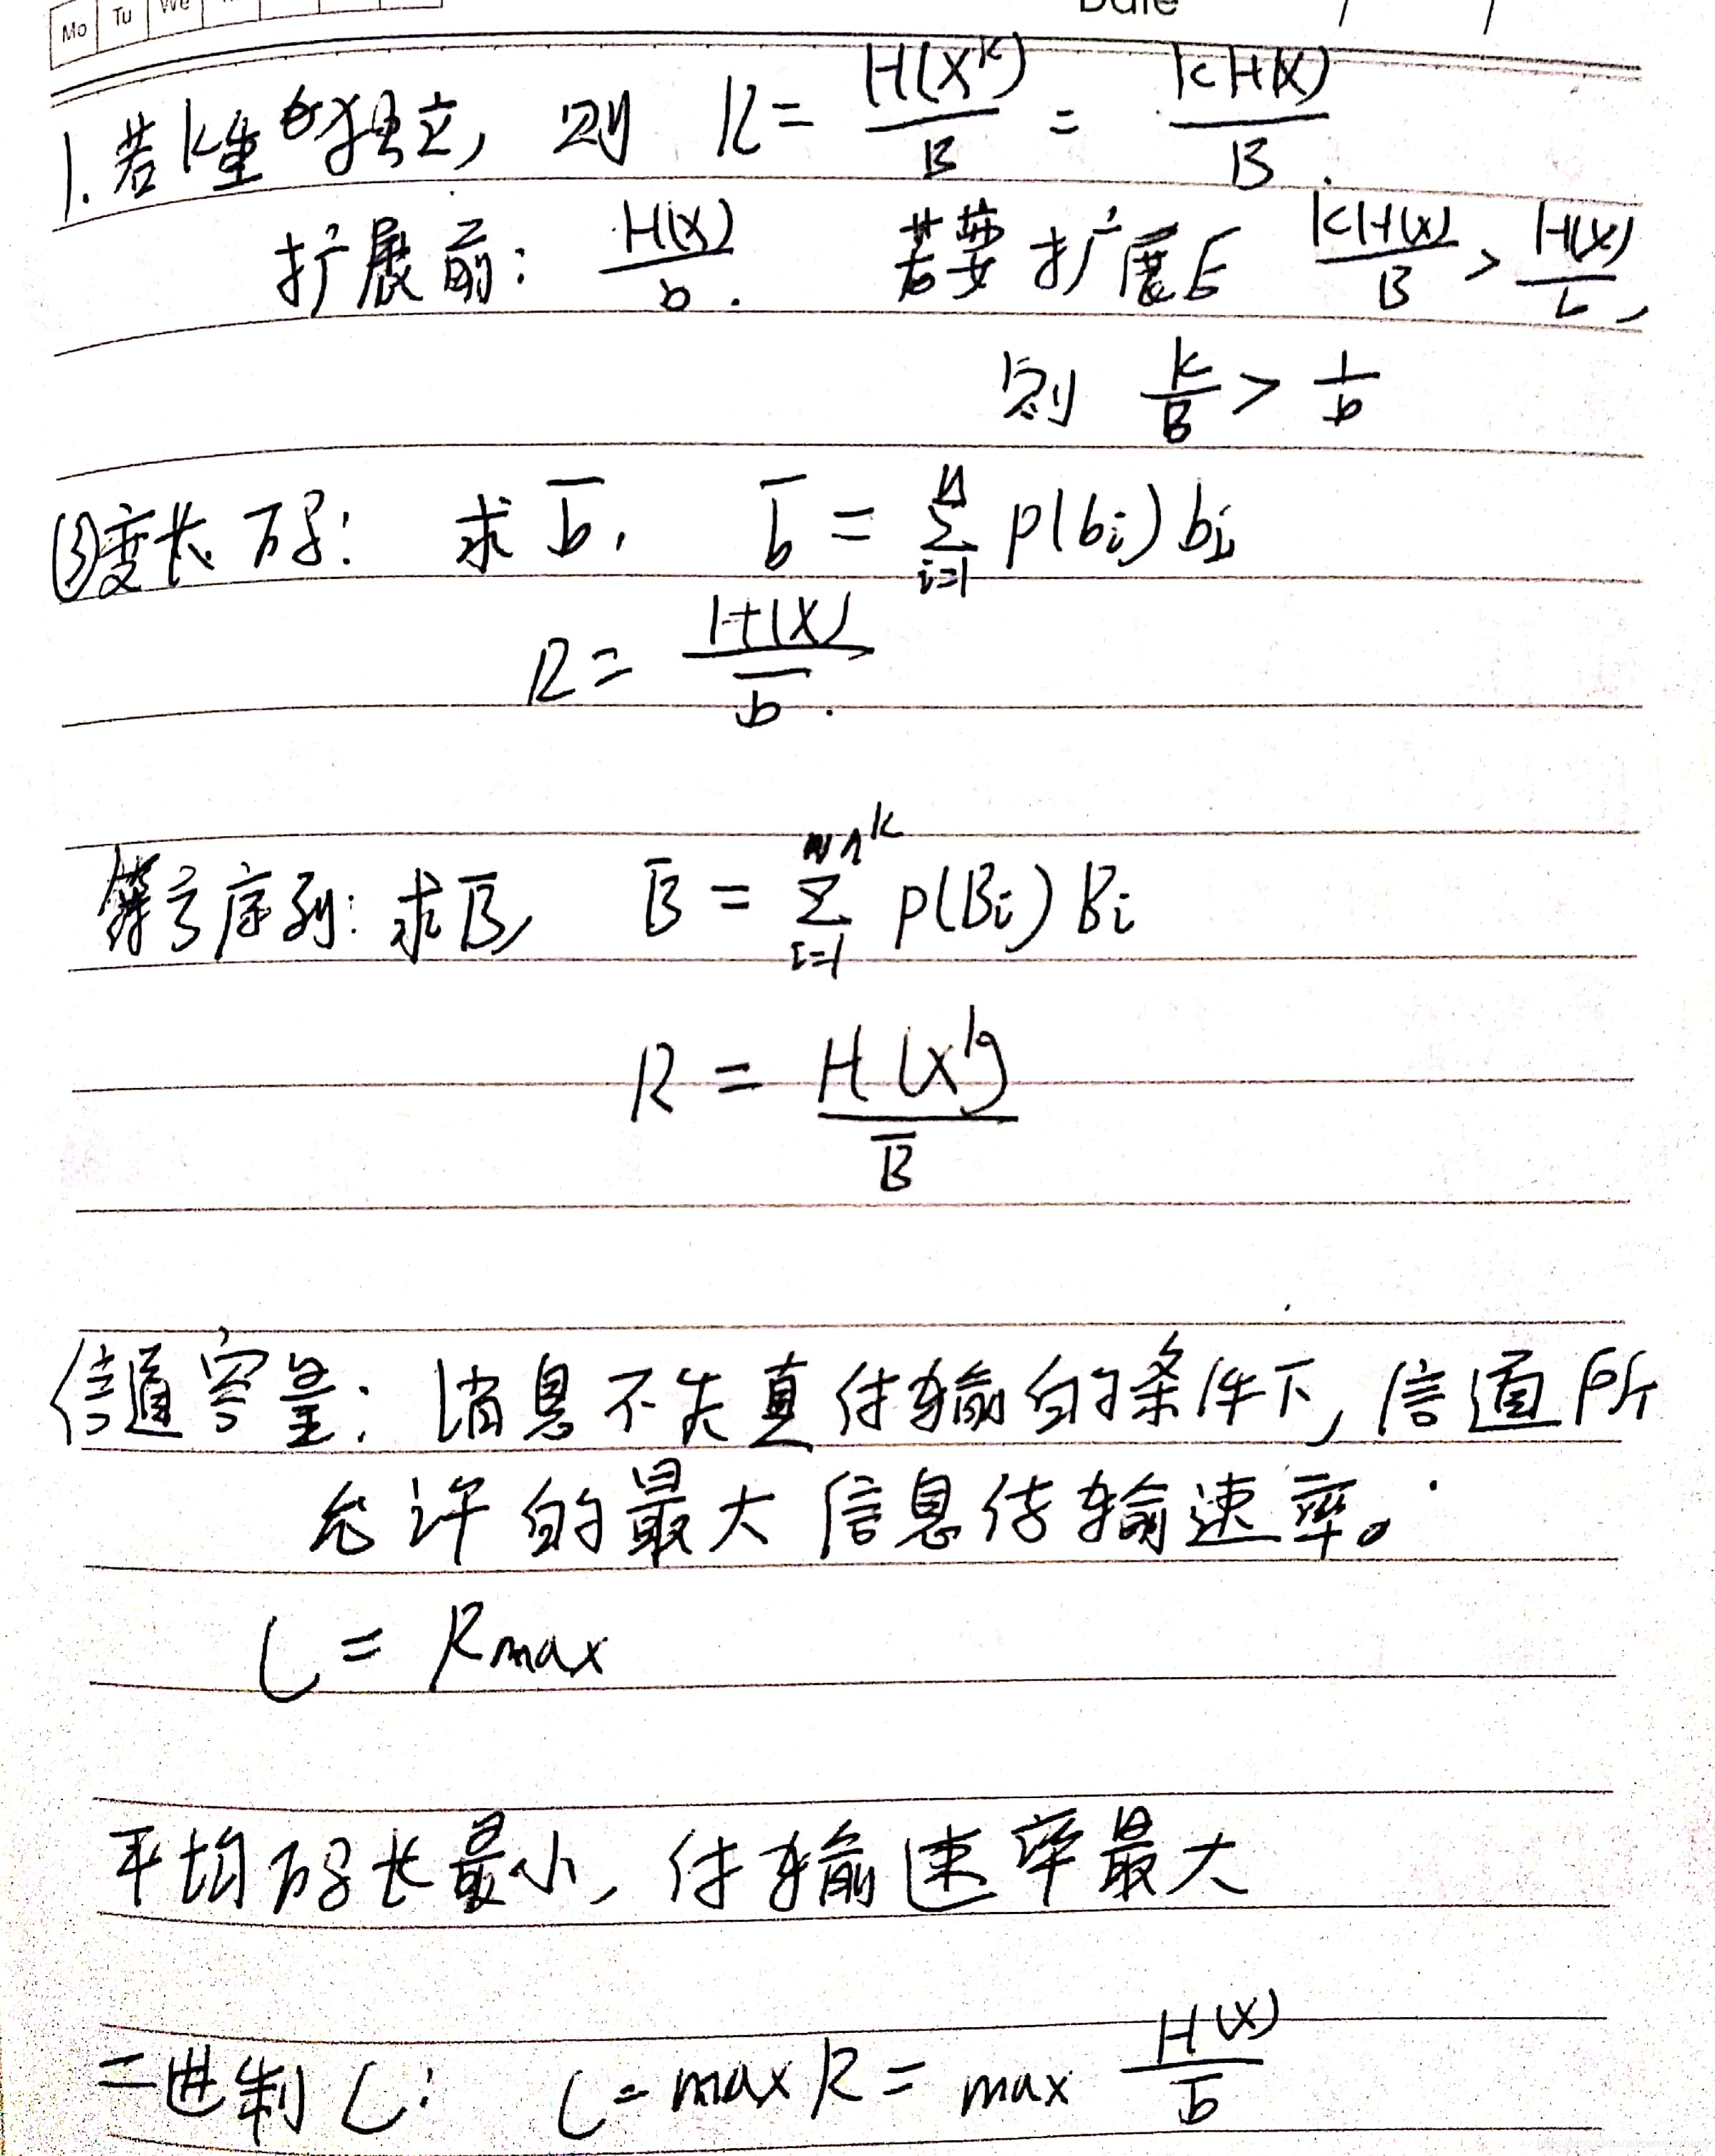 Mo Tu We Date / /
1. 若k重独立, 则 R = H(X^k)/B = kH(X)/B.
扩展前: H(X)/b. 若要扩展后 kH(X)/B > H(X)/b,
则 k/B > 1/b
(3)变长码: 求b̄, b̄ = Σ_{i=1}^{n} p(bi) bi
R = H(X)/b̄.
符号序列: 求B̄, B̄ = Σ_{i=1}^{n^k} p(Bi) Bi
R = H(X^k)/B̄
信道容量: 消息不失真传输的条件下, 信道所
允许的最大信息传输速率。
C = Rmax
平均码长最小, 传输速率最大
二进制C: C = max R = max H(X)/b̄